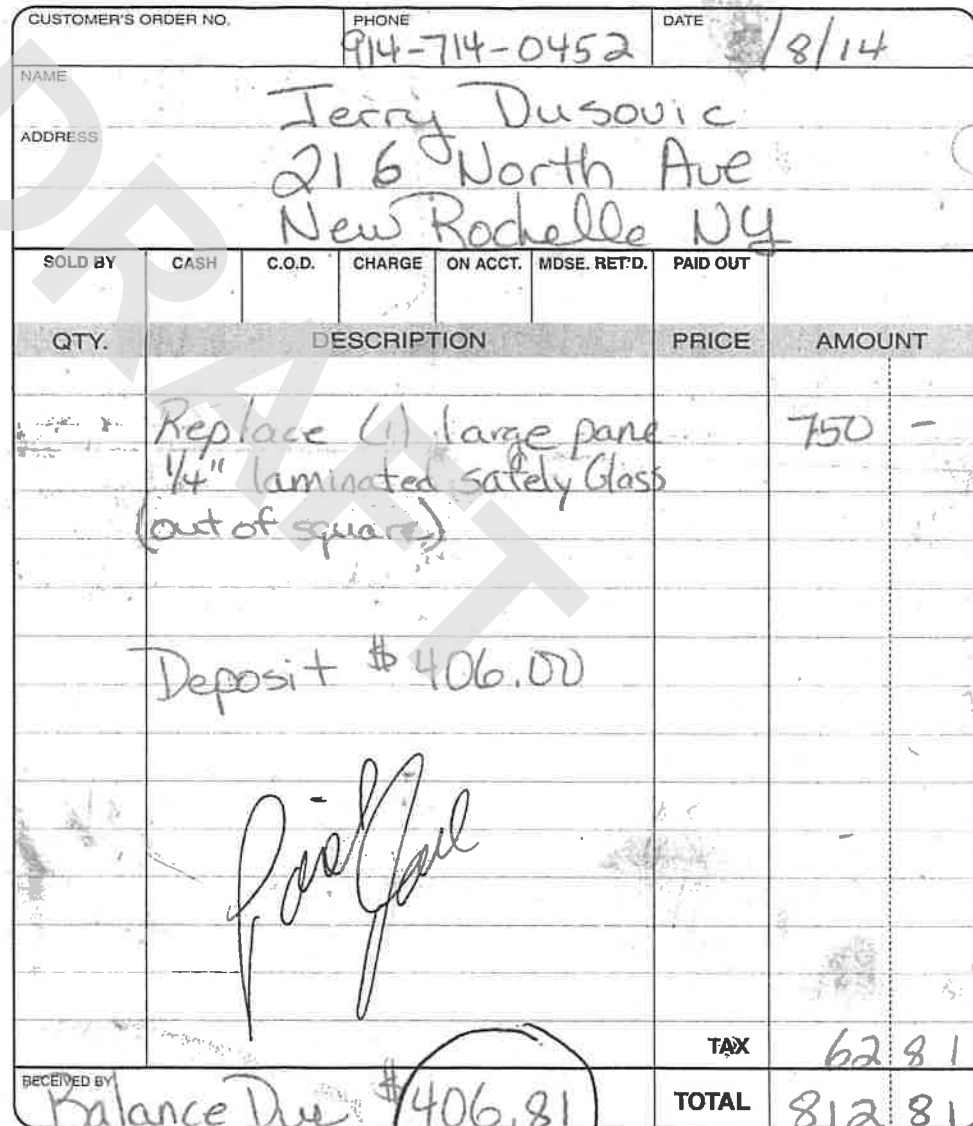 CUSTOMER'S ORDER NO. PHONE DATE
914-714-0452 /8/14
NAME
Jerry Dusovic
ADDRESS
216 North Ave
New Rochelle NY
SOLD BY CASH C.O.D. CHARGE ON ACCT. MDSE. RET'D. PAID OUT
QTY. DESCRIPTION PRICE AMOUNT
Replace (1) large pane 750 -
1/4" laminated safety Glass
(out of square)
Deposit $406.00
TAX 62 81
RECEIVED BY
Balance Due $406.81 TOTAL 812 81
DRAFT